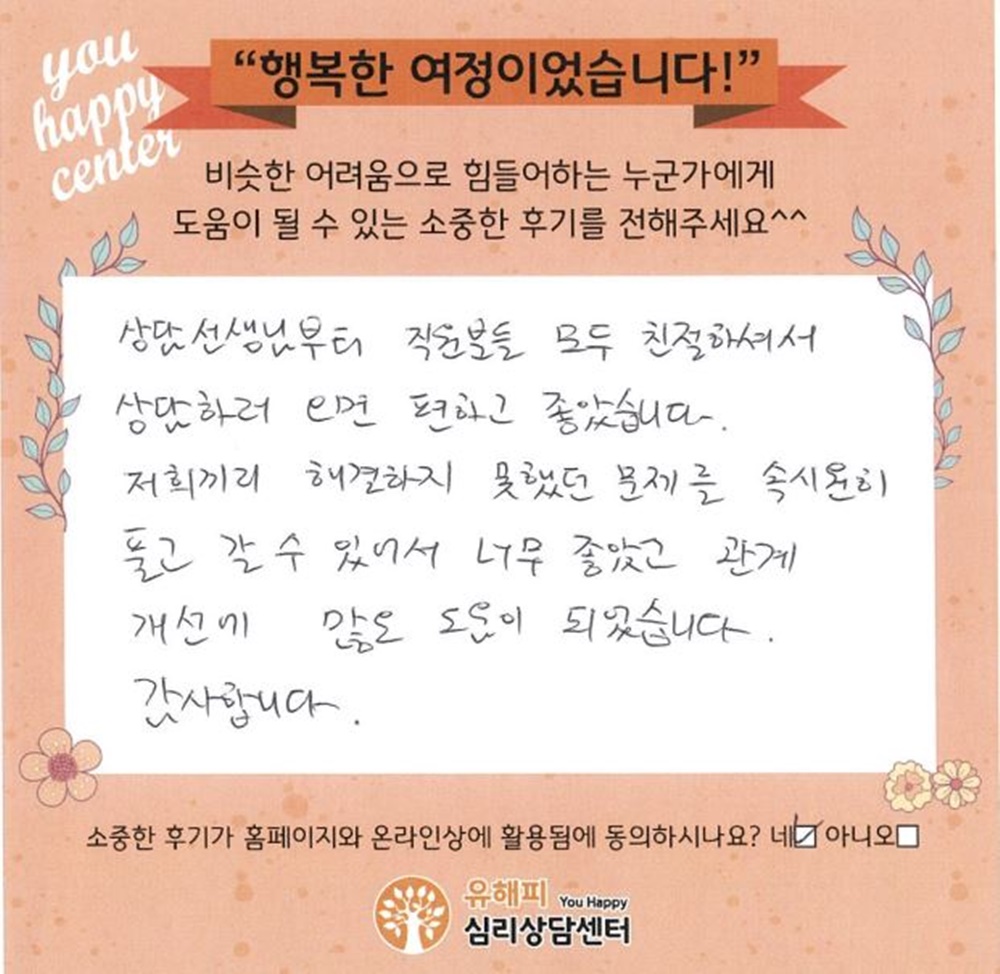 you
happy
center
“행복한 여정이었습니다!”
비슷한 어려움으로 힘들어하는 누군가에게
도움이 될 수 있는 소중한 후기를 전해주세요^^
상담선생님부터 직원분들 모두 친절하셔서
상담하러 오면 편하고 좋았습니다.
저희끼리 해결하지 못했던 문제를 속시원히
풀고 갈 수 있어서 너무 좋았고 관계
개선에 많은 도움이 되었습니다.
감사합니다.
소중한 후기가 홈페이지와 온라인상에 활용됨에 동의하시나요? 네☑ 아니오☐
유해피 You Happy
심리상담센터